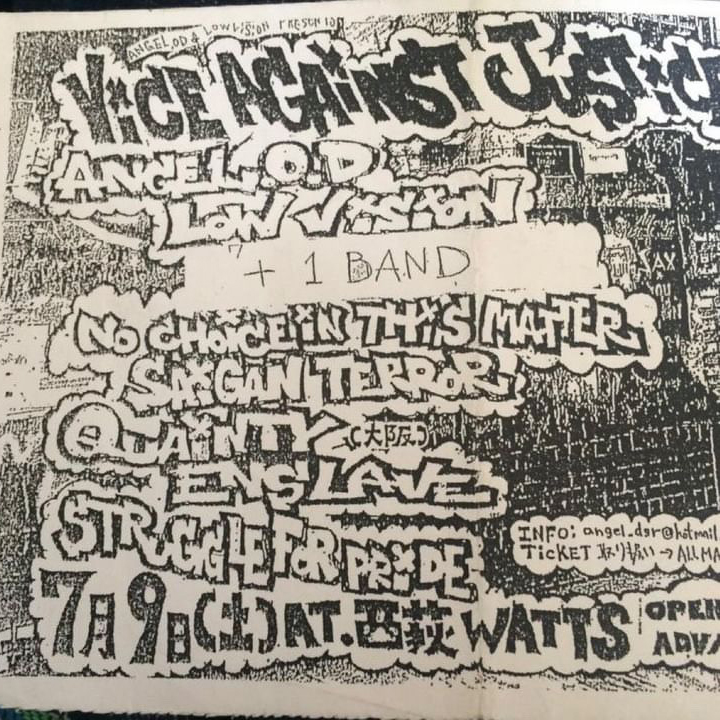 ANGEL O.D & LOW VISION PRESENTS
ViCE AGAiNST JUSTiCE
ANGEL O.D.
LOW ViSiON
+ 1 BAND
NO CHOiCE iN THiS MATTER
SAiGAN TERROR
QUAiNTY (大阪)
ENSLAVE
STRUGGLE FOR PRiDE
INFO: angel.dsr@hotmail
TiCKET 取り扱い → ALL MA
7月9日(土) AT. 西荻 WATTS
OPEN
ADV/